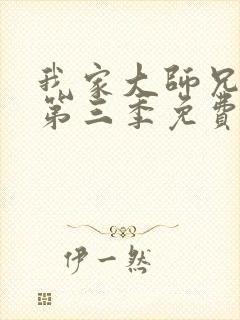 我家大師兄
第三季免費
伊一然